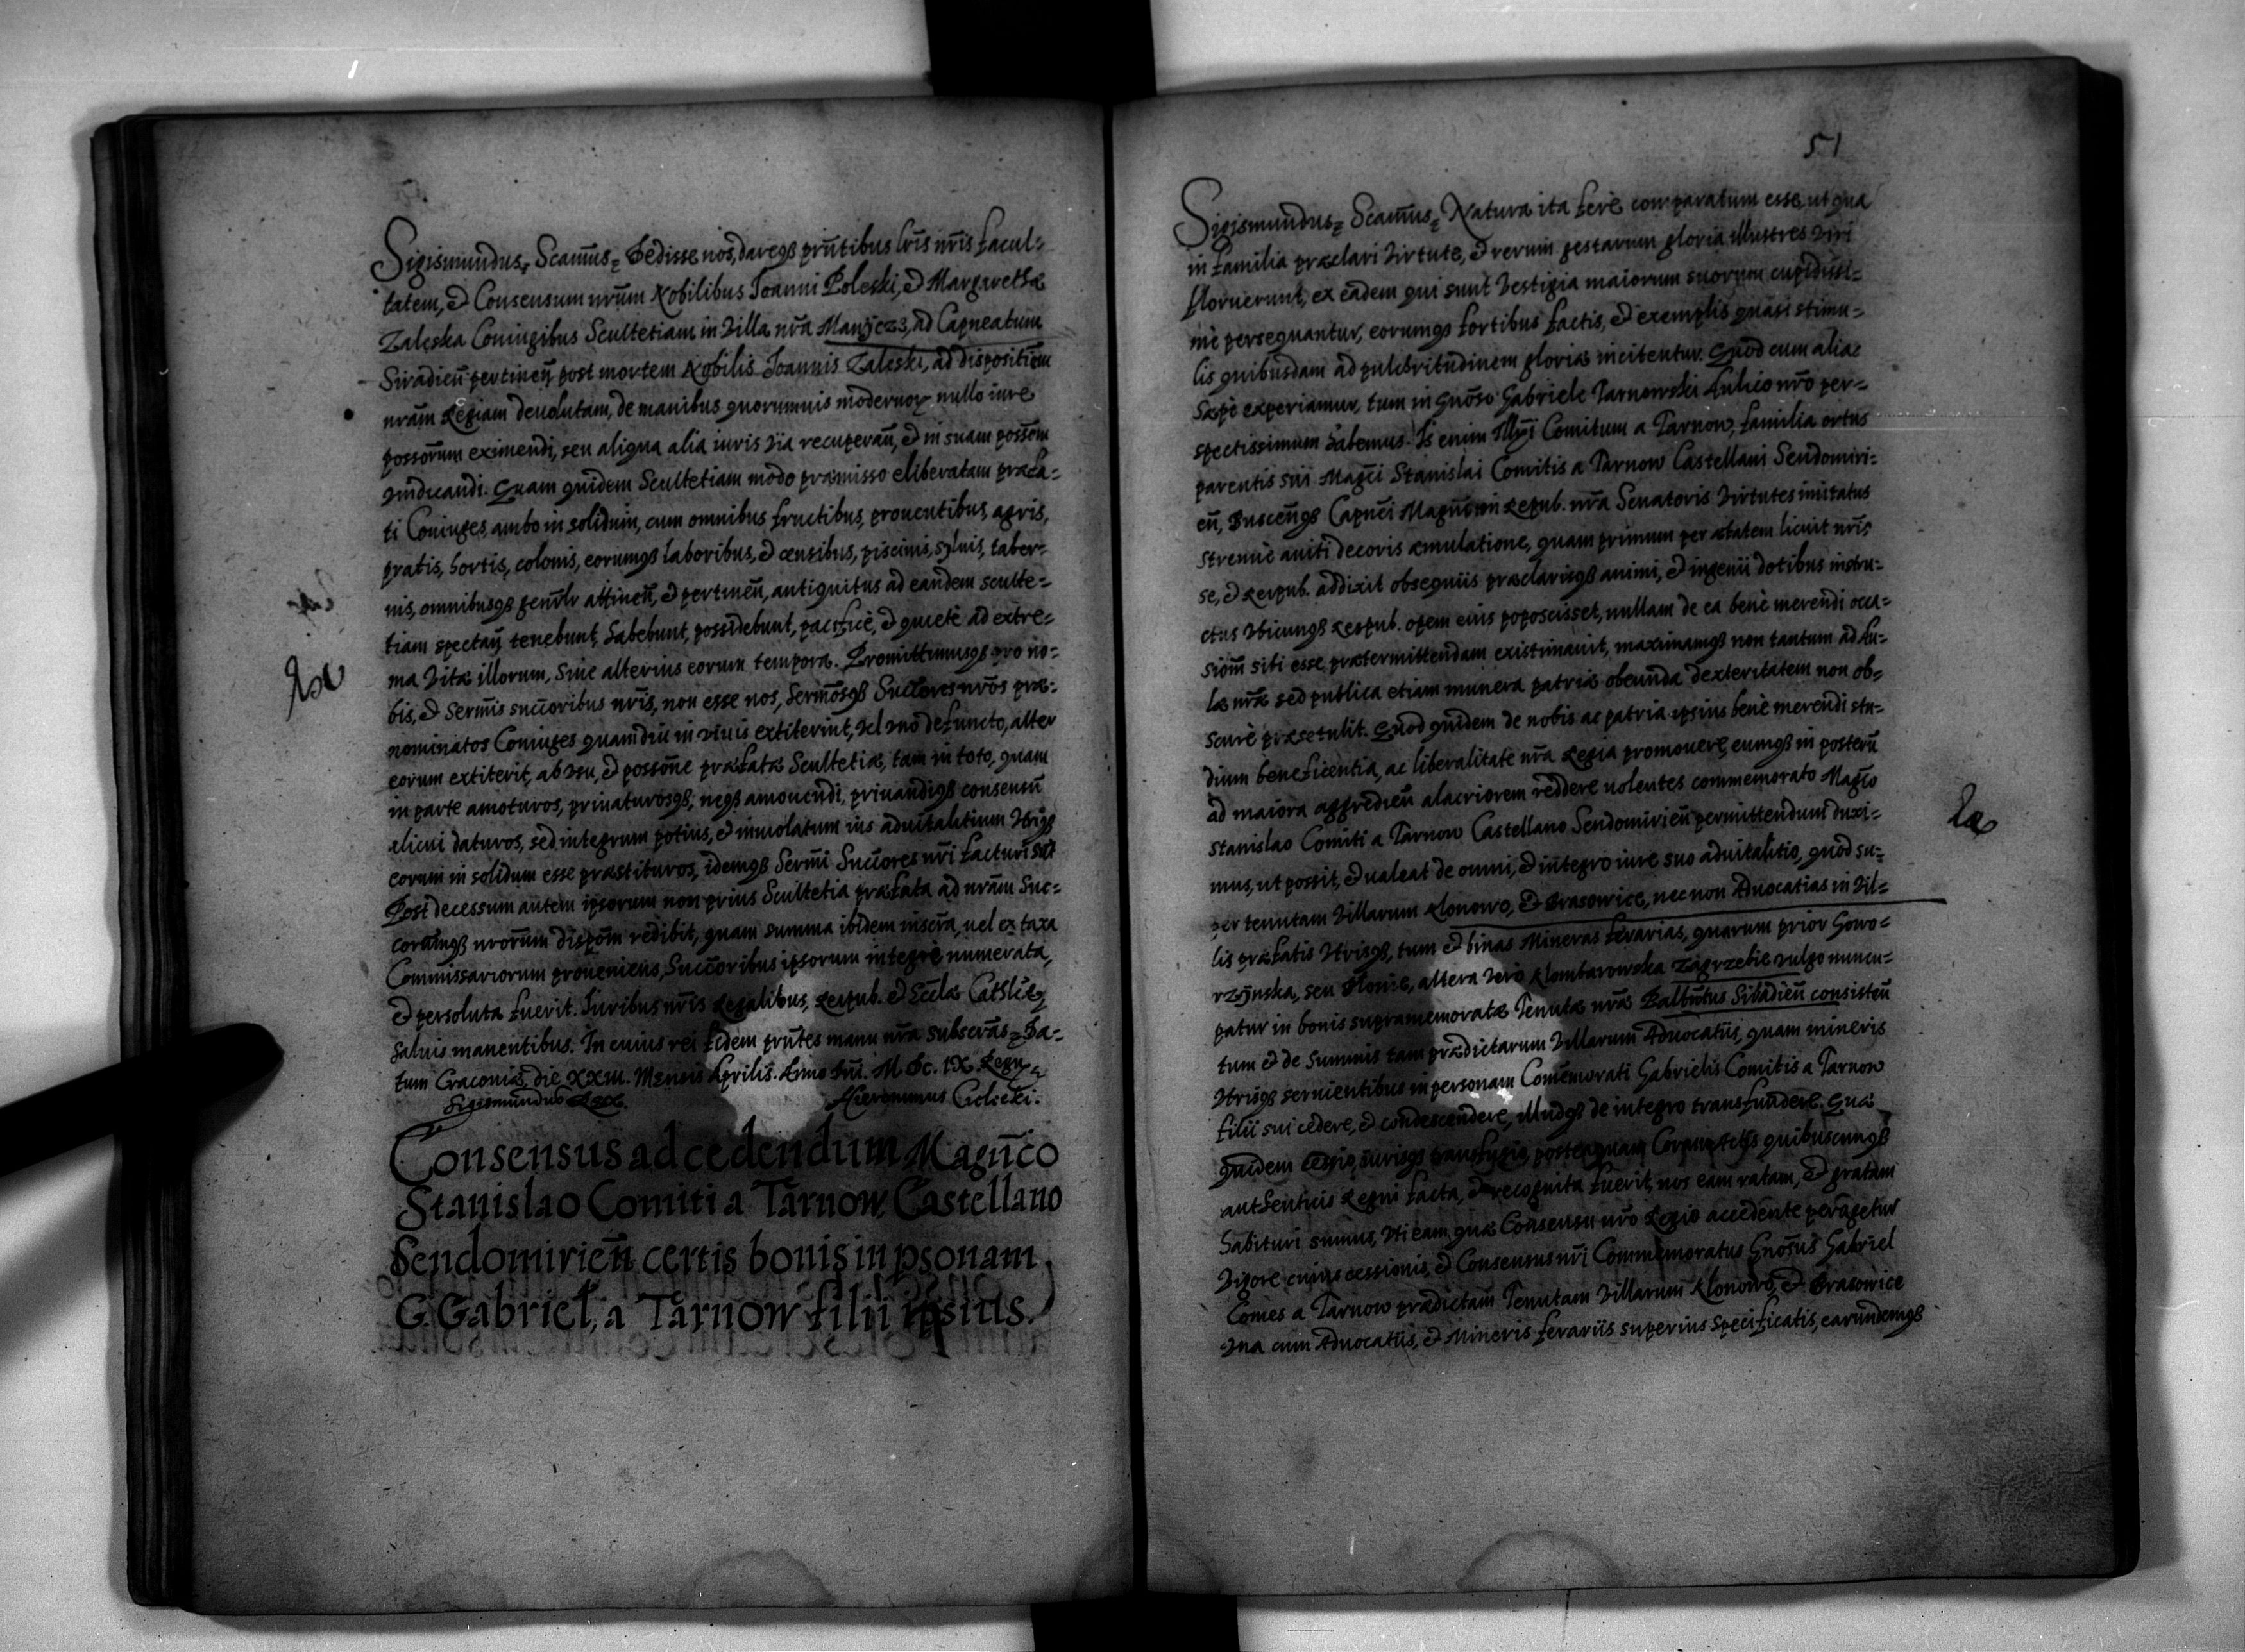 Sigismundus, Scamus, Dedisse nos, dareqз pñtibus lr̃is nr̃is facul-
tatem, & Consensum nrũm Nobilibus Joanni Poleski, & Margaretha
Zaleska Coniugibus Scultetiam in Villa nrã Manÿczз, ad Capneatum
Siradieñ pertineñ post mortem Nobilis Joannis Zaleski, ad dispositiẽm
nrãm Regiam deuolutam, de manibus quorumuis modernoꝝ nullo iure
possor̃um eximendi, seu aliqua alia iuris via recuperañ, & in suam possẽm
vindicandi. Quam quidem Scultetiam modo præmisso eliberatam præfa-
ti Coniuges, ambo in solidum, cum omnibus fructibus, prouentibus, agris,
pratis, hortis, colonis, eorumqз laboribus, & censibus, piscinis, syluis, taber-
nis, omnibusqз genr̃lr attineñ, & pertineñ, antiquitus ad eandem sculte-
tiam spectañ tenebunt, habebunt, possidebunt, pacificè, & quietè ad extre-
ma vitæ illorum, siue alterius eorum tempora. Promittimusqз pro no-
bis, & Serm̃is succ̃oribus nr̃is, non esse nos, Serm̃osqз Succ̃ores nr̃os præ-
nominatos Coniuges quamdiu in viuis extiterint, vel vno defuncto, alter
eorum extiterit, ab vsu, & possõne præfatæ Scultetiæ, tam in toto, quam
in parte amoturos, priuaturosqз, neqз amouendi, priuandiqз consensũ
alicui daturos, sed integrum potius, & inuiolatum ius aduitalitium vtriqз
eorum in solidum esse præstituros, idemqз Serm̃i Succ̃ores nr̃i facturi sũt
Post decessum autem ipsorum non prius Scultetia præfata ad nrãm Suc-
corumqз nrorũm dispõm redibit, quam summa ibidem inscr̃a, uel ex taxa
Commissariorum proueniens, Succ̃oribus ipsorum integrè numerata,
& persoluta fuerit. Iuribus nr̃is Regalibus, Reipub. & Eccl̃æ Cathl̃cæ
saluis manentibus. In cuius rei fidem pñtes manu nrã subscr̃as Da-
tum Cracouiæ die XXIII. Mensis Aprilis. Anno Dñi. M. Dc. IX. Regn
Sigismundus Rex. Hieronimus Cielecki.
Consensus ad cedendum Magñco
Stanislao Comiti a Tarnow, Castellano
Sendomirieñ certis bonis in psonam
G. Gabriel, a Tarnow filii ipsius.
51
Sigismundus, Scamus, Natura ita ferè comparatum esse, ut qua
in familia præclari virtute, & rerum gestarum gloria illustres viri
floruerunt, ex eadem qui sunt vestigia maiorum suorum cupidissi-
mè persequantur, eorumqз fortibus factis, & exemplis quasi stimu-
lis quibusdam ad pulchritudinem gloriæ incitentur. Quod cum alias
sæpè experiamur, tum in Gnõso Gabriele Tarnowski Aulico nrõ per-
spectissimum habemus. Is enim Comitum a Tarnow, familia ortus
parentis sui Magc̃i Stanislai Comitis a Tarnow Castellani Sendomiri-
eñ, Busceñqз Capnẽi Magnũm in Repub. nrã Senatoris virtutes imitatus
strenuè auiti decoris æmulatione, quam primum per ætatem licuit nr̃is
se, & Reipub. addixit obsequiis præclarisqз animi, & ingenii dotibus instru-
ctus vbicunqз Reipub. opem eius poposcisset, nullam de ea benè merendi occa-
siõm sibi esse prætermittendam existimauit, maximamqз non tantum ad Au-
la nrã sed publica etiam munera patriæ obeunda dexteritatem non ob-
scurè præsetulit. Quod quidem de nobis ac patria ipsius benè merendi stu-
dium beneficentia, ac liberalitate nrã Regia promouere, eumqз in posterũ
ad maiora aggredieñ alacriorem reddere uolentes commemorato Magc̃o
Stanislao Comiti a Tarnow Castellano Sendomirieñ permittendum duxi-
mus, ut possit, & ualeat de omni, & integro iure suo aduitalitio, quod su-
per tenutam Villarum Klonowo, & Brasowice, nec non Aduocatias in vil-
lis præfatis vtrisqз, tum & binas Mineras ferarias, quarum prior Gowo-
rzÿnska, seu altera verò Klombarowska Zagrzebie vulgo nuncu-
patur in bonis supramemoratæ Tenutæ nrã consisteñ
tum & de Summis tam prædictarum villarum Aduocatiis, quam mineris
vtrisqз seruientibus in personam Comẽmorati Gabrielis Comitis a Tarnow
filii sui cedere, & condescendere, illudqз de integro transfundere. Quæ
quidem cessio, iurisqз transfusio, posteaquam Coram Actis quibuscunqз
authenticis Regni facta, & recognita fuerit, nos eam ratam, & gratam
habituri sumus, vti eam, quæ Consensu nrõ Regio accedente peragetur
Vigore cuius cessionis, & Consensus nr̃i Commemoratus Gnõsus Gabriel
Comes a Tarnow prædictam Tenutam villarum Klonowo, & Brasowice
vna cum Aduocatiis, & Mineris ferariis superius specificatis, earundemqз